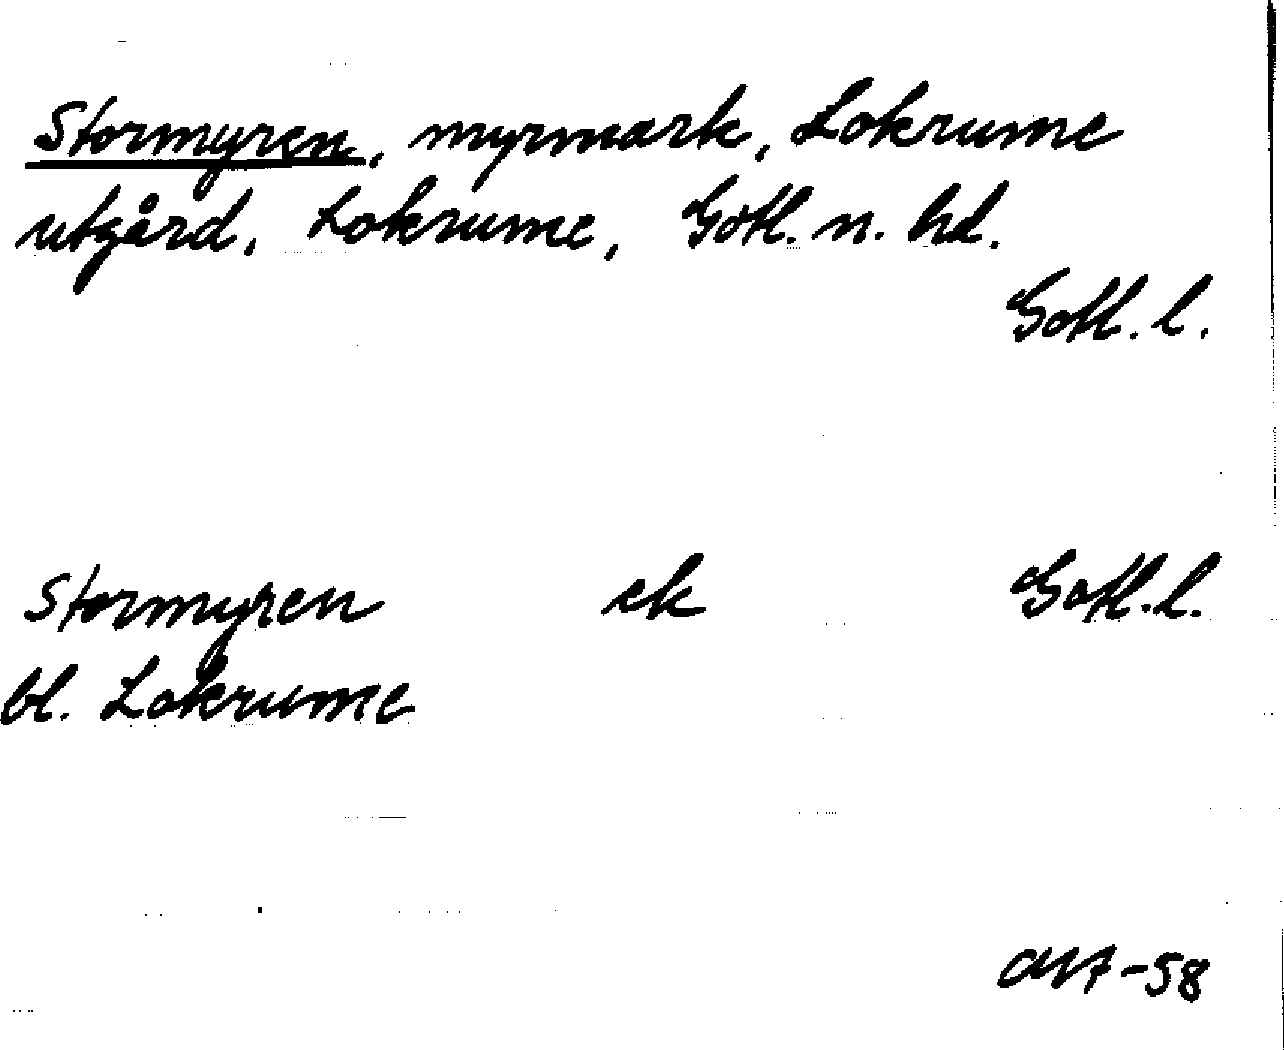 Stormyren, myrmark, Lokrume
utgård, Lokrume, Gotl. n. hd.
Gotl. l.
Stormyren ek Gotl. l.
bl. Lokrume
-58